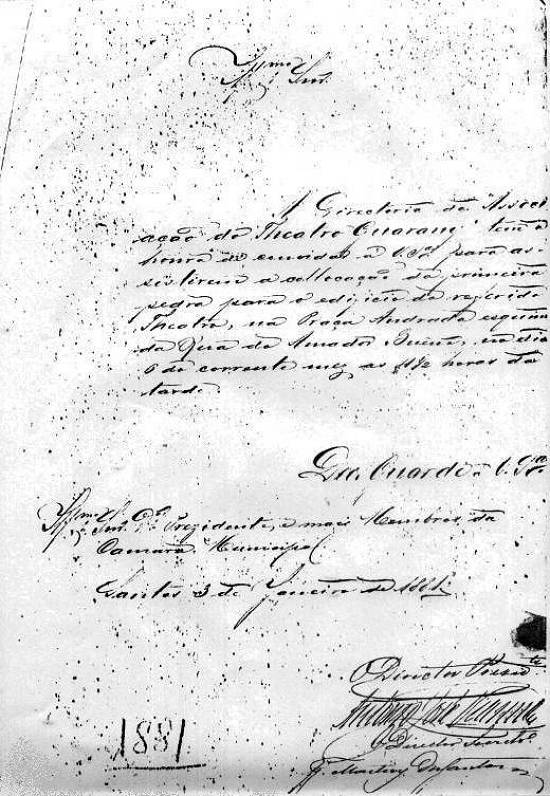 Snr.
A Directoria da Associ-
ação do Theatro Guarany tem a
honra de convidar a V. Sas. para as-
sistirem a collocação da primeira
pedra para o edificio do referido
Theatro, na Praça Andrada esquina
da Rua de Amador Bueno, no dia
6 do corrente mez as 4 1/2 horas da
tarde.
Guarde a V. Sas.
Snr. Prezidente, e mais Membros da
Camara Municipal
Santos 3 de Janeiro de 1881.
O Director Presid.te
Antonio José
O Director Secret.o
1881